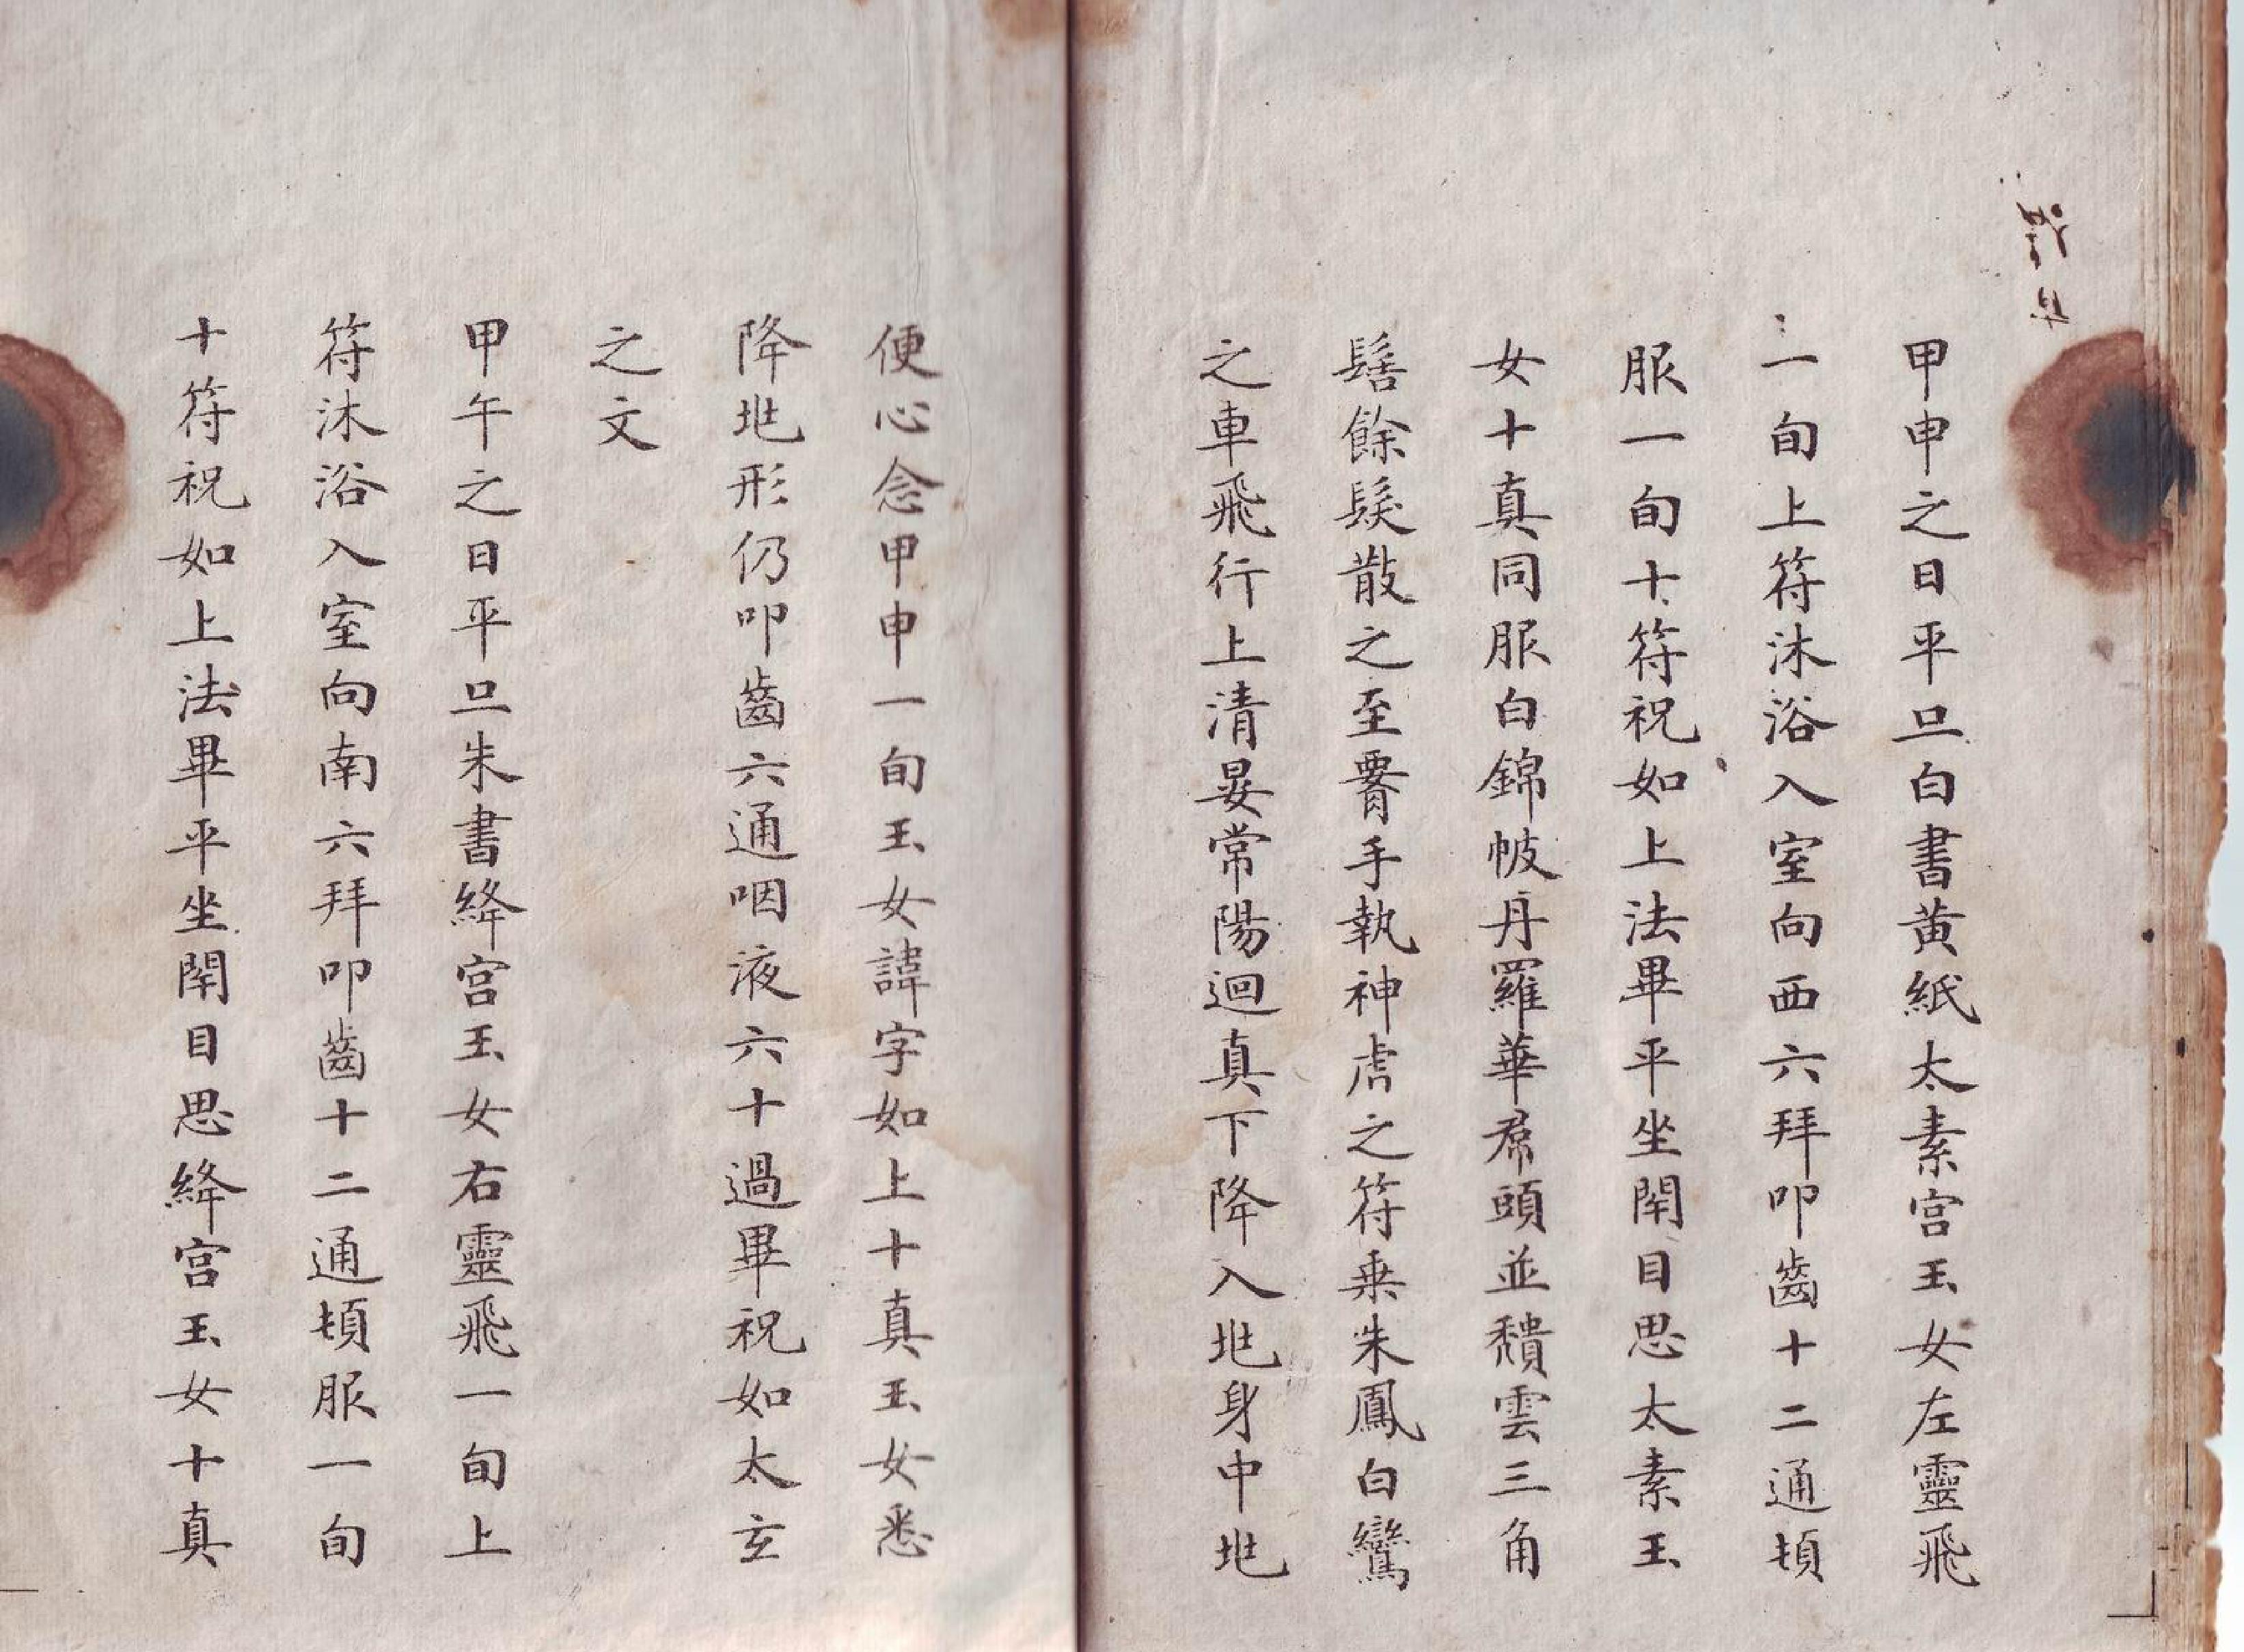 甲申之日平旦白書黄紙太素宫玉女左靈飛
一旬上符沐浴入室向西六拜叩齒十二通頓
服一旬十符祝如上法畢平坐閉目思太素玉
女十真同服白錦帔丹羅華帬頭並頹雲三角
髻餘髮散之至腰手執神虎之符乗朱鳳白鸞
之車飛行上清晏常陽迴真下降入兆身中兆
便心念甲申一旬玉女諱字如上十真玉女悉
降兆形仍叩齒六通咽液六十過畢祝如太玄
之文
甲午之日平旦朱書絳宫玉女右靈飛一旬上
符沐浴入室向南六拜叩齒十二通頓服一旬
十符祝如上法畢平坐閉目思絳宫玉女十真